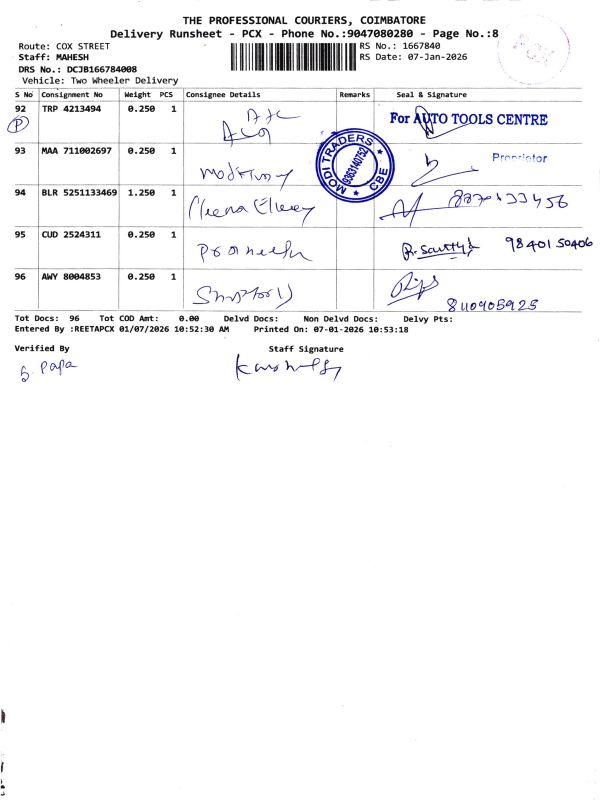 THE PROFESSIONAL COURIERS, COIMBATORE
Delivery Runsheet - PCX - Phone No.:9047080280 - Page No.:8
Route: COX STREET
RS No.: 1667840
Staff: MAHESH
RS Date: 07-Jan-2026
DRS No.: DCJB166784008
Vehicle: Two Wheeler Delivery
PCX
S No Consignment No Weight PCS Consignee Details Remarks Seal & Signature
92 TRP 4213494 0.250 1 For AUTO TOOLS CENTRE
P
93 MAA 711002697 0.250 1 Proprietor
MODI TRADERS
9363140752
CBE
94 BLR 5251133469 1.250 1 8870133456
95 CUD 2524311 0.250 1 9840150406
96 AWY 8004853 0.250 1
8110905925
Tot Docs: 96 Tot COD Amt: 0.00 Delvd Docs: Non Delvd Docs: Delvy Pts:
Entered By :REETAPCX 01/07/2026 10:52:30 AM Printed On: 07-01-2026 10:53:18
Verified By Staff Signature
S. Papa